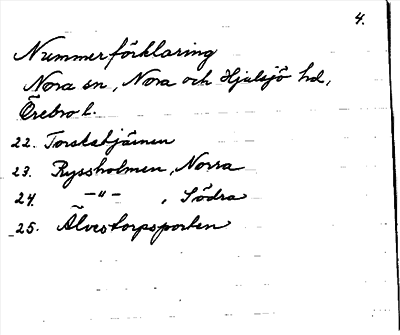 4.
Nummerförklaring
Nora sn, Nora och Hjulsjö hd,
Örebro l.
22. Torskabjärnen
23. Ryssholmen, Norra
24. —"— , Södra
25. Älvestorpsporten